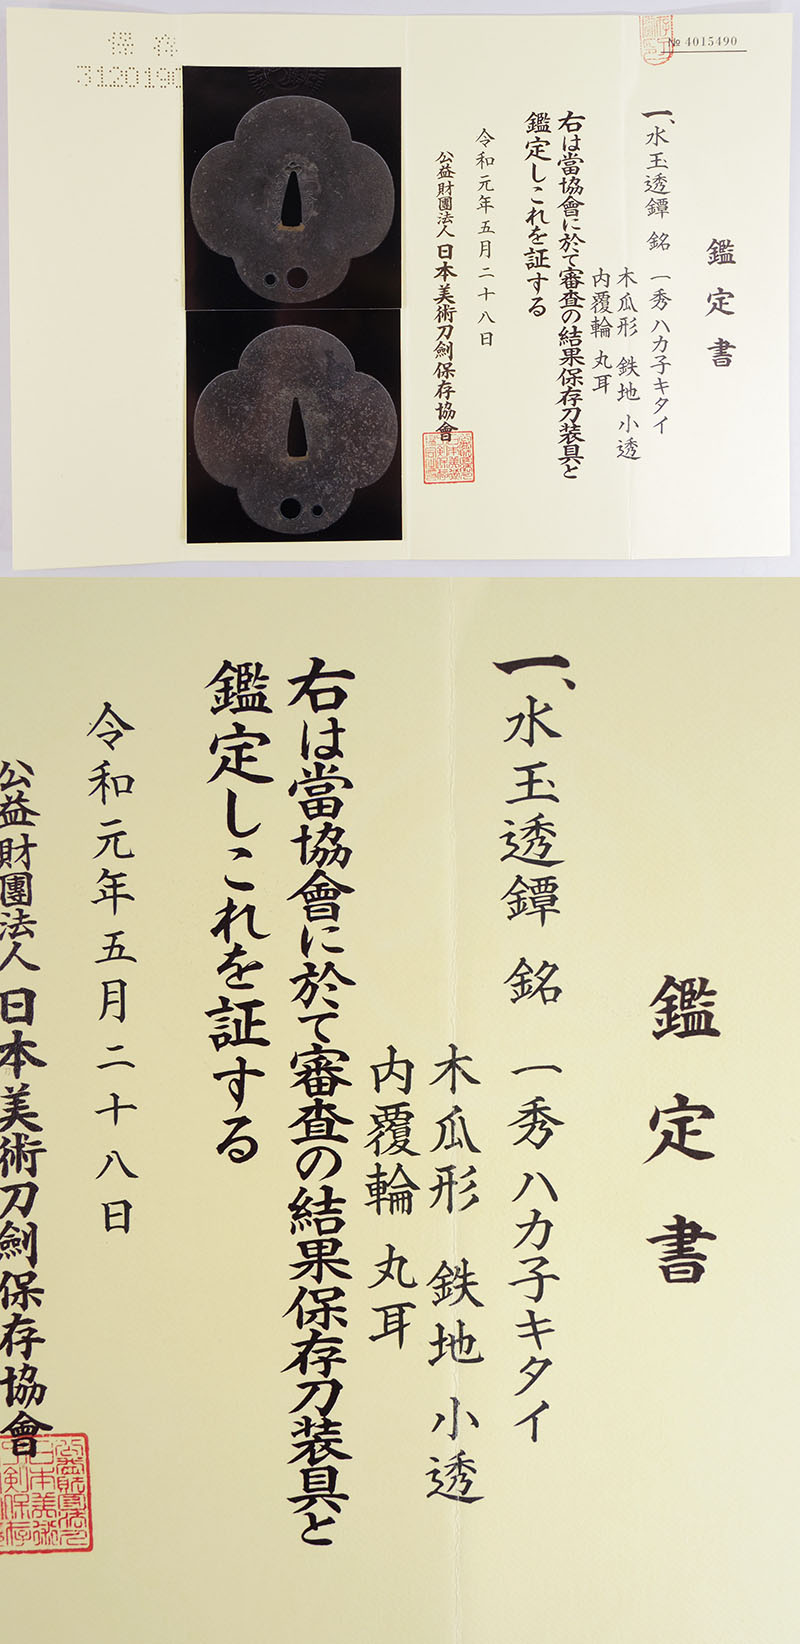 保存
3120190
№ 4015490
鑑定書
一、水玉透鐔 銘 一秀ハカ子キタイ
木瓜形 鉄地 小透
内覆輪 丸耳
右は當協會に於て審査の結果保存刀装具と
鑑定しこれを証する
令和元年五月二十八日
公益財團法人 日本美術刀劍保存協會
鑑定書
一、水玉透鐔 銘 一秀ハカ子キタイ
木瓜形 鉄地 小透
内覆輪 丸耳
右は當協會に於て審査の結果保存刀装具と
鑑定しこれを証する
令和元年五月二十八日
公益財團法人 日本美術刀劍保存協會